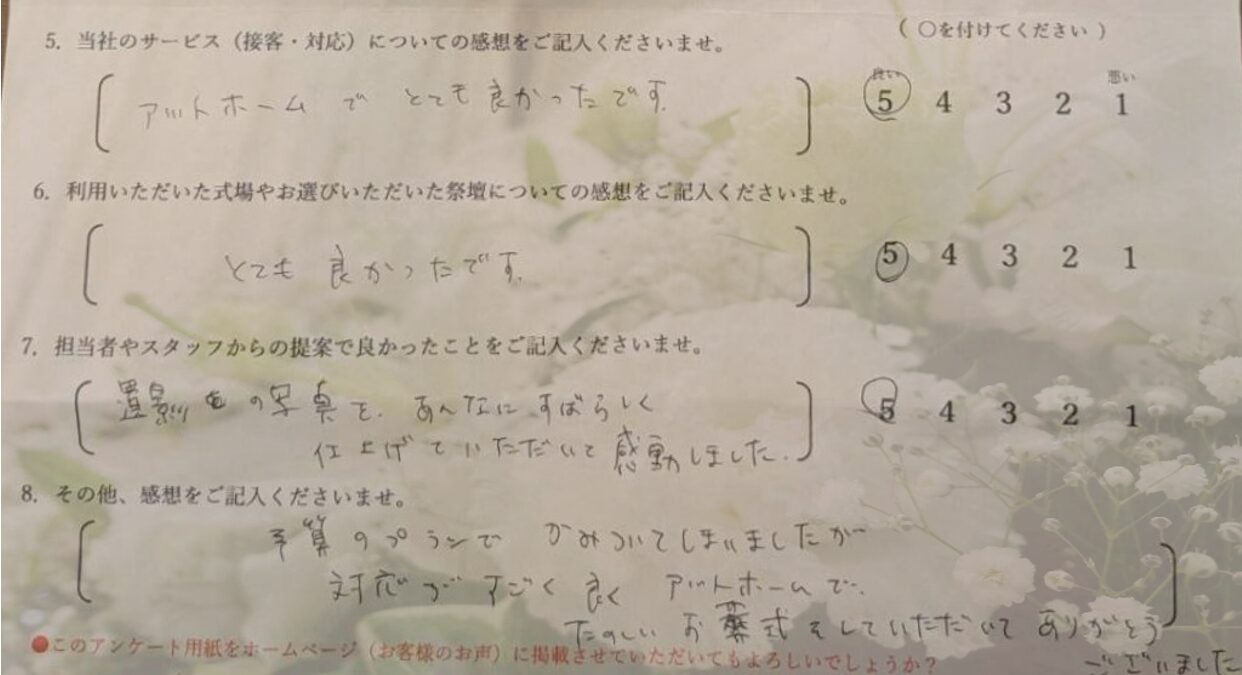 5. 当社のサービス（接客・対応）についての感想をご記入くださいませ。 （ 〇を付けてください ）
アットホームで とても良かったです。
良い 悪い
5 4 3 2 1
6. 利用いただいた式場やお選びいただいた祭壇についての感想をご記入くださいませ。
とても 良かったです。
5 4 3 2 1
7. 担当者やスタッフからの提案で良かったことをご記入くださいませ。
置影の写真を、あんなにすばらしく
仕上げていただいて感動しました。
5 4 3 2 1
8. その他、感想をご記入くださいませ。
予算のプランで かみついてしまいましたが
対応がすごく良く アットホームで、
たのしい お葬式をしていただいて ありがとう
ございました
●このアンケート用紙をホームページ（お客様のお声）に掲載させていただいてもよろしいでしょうか？